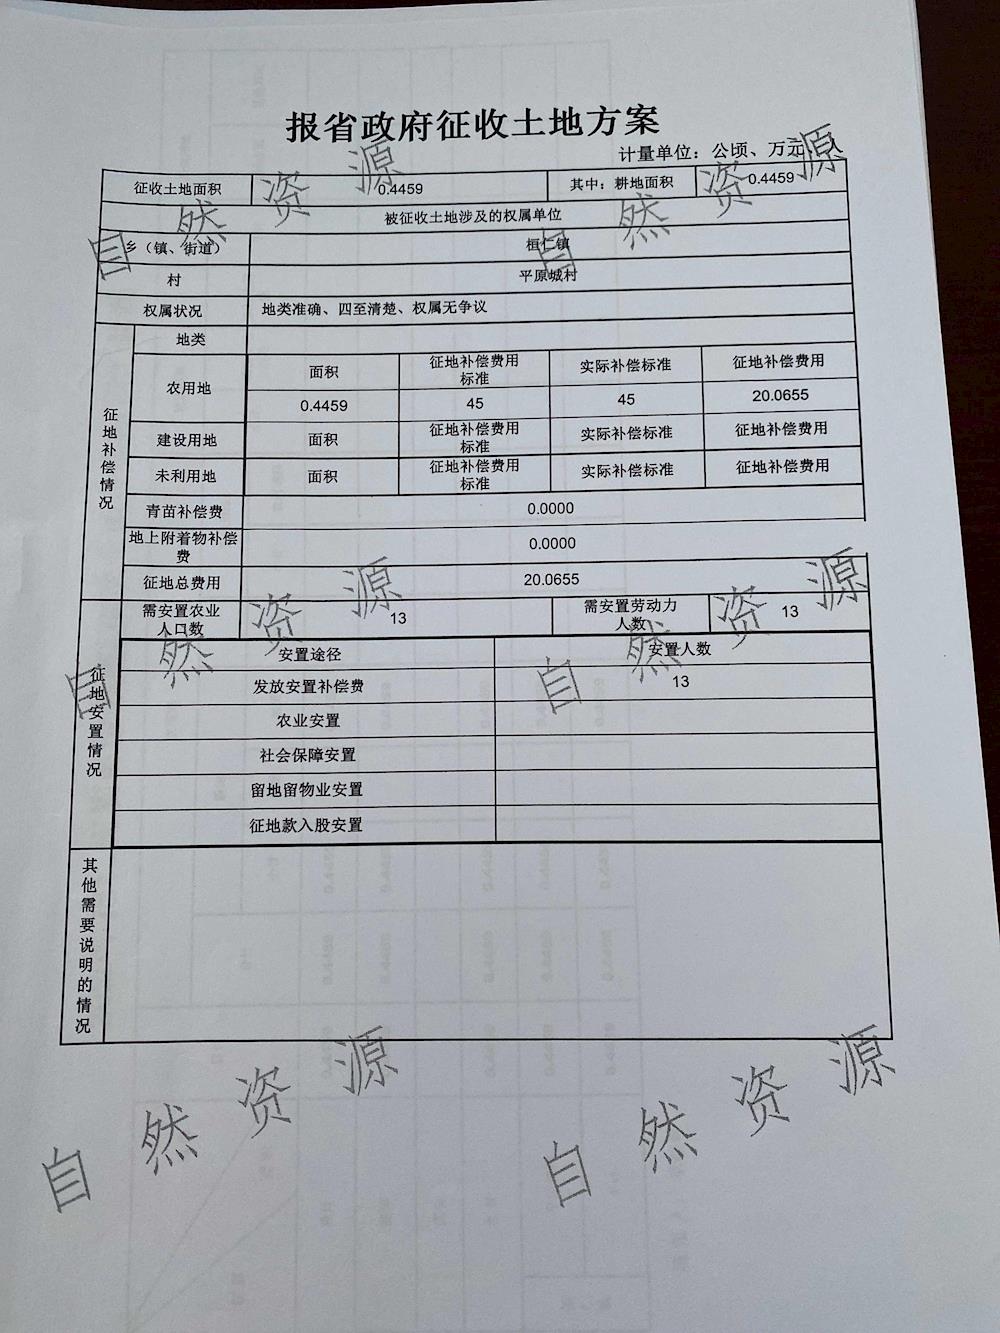 报省政府征收土地方案
计量单位：公顷、万元、人
征收土地面积 0.4459 其中：耕地面积 0.4459
被征收土地涉及的权属单位
乡（镇、街道） 桓仁镇
村 平原城村
权属状况 地类准确、四至清楚、权属无争议
征地补偿情况
地类
农用地 面积 征地补偿费用标准 实际补偿标准 征地补偿费用
0.4459 45 45 20.0655
建设用地 面积 征地补偿费用标准 实际补偿标准 征地补偿费用
未利用地 面积 征地补偿费用标准 实际补偿标准 征地补偿费用
青苗补偿费 0.0000
地上附着物补偿费 0.0000
征地总费用 20.0655
征地安置情况
需安置农业人口数 13 需安置劳动力人数 13
安置途径 安置人数
发放安置补偿费 13
农业安置
社会保障安置
留地留物业安置
征地款入股安置
其他需要说明的情况
自然资源
自然资源
自然资源
自然资源
自然资源
自然资源